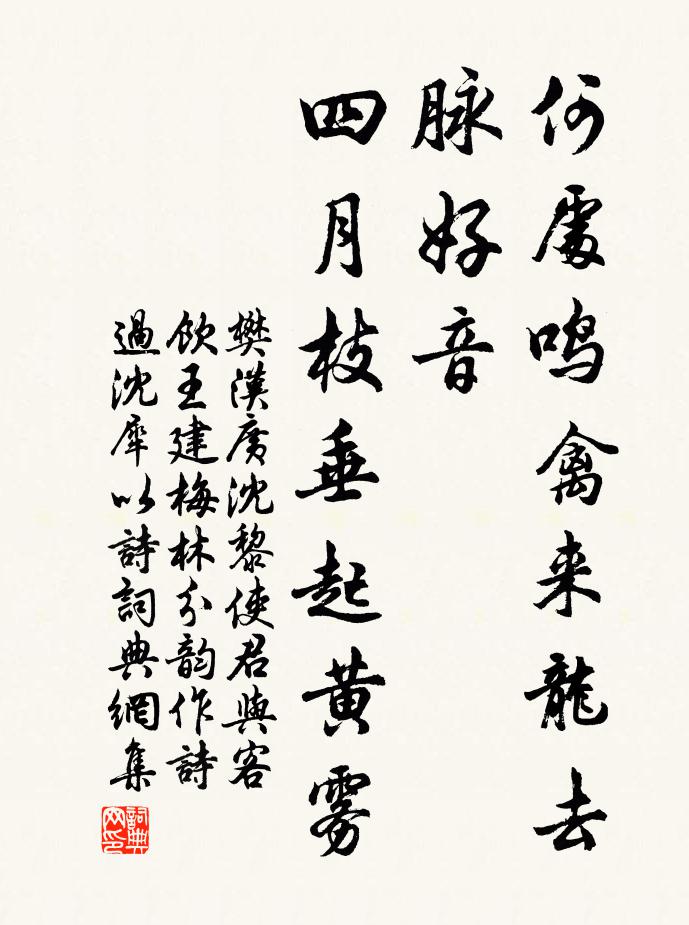 何處鸣禽来龍去
脉好音
四月枝垂起黄雾
樊漢廣沈黎使君與客
飲王建梅林分韵作詩
過沈犀以詩詞典網集
詞典网印